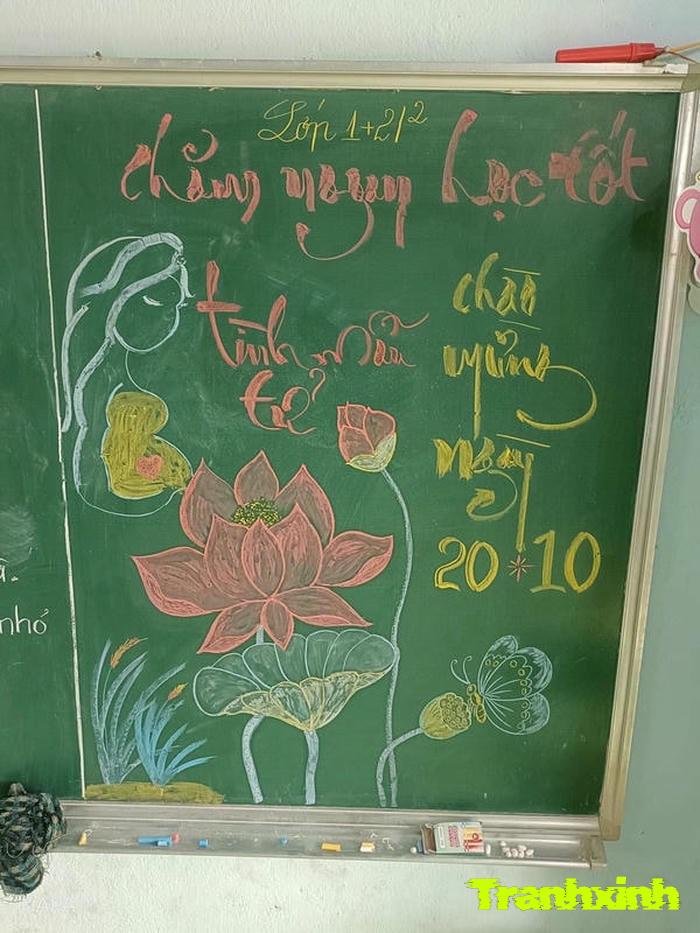 Lớp 1+2/2
chăm ngoan Học tốt
tình mẫu
tử
chào
mừng
ngày
20*10
nhỏ
Tranhxinh